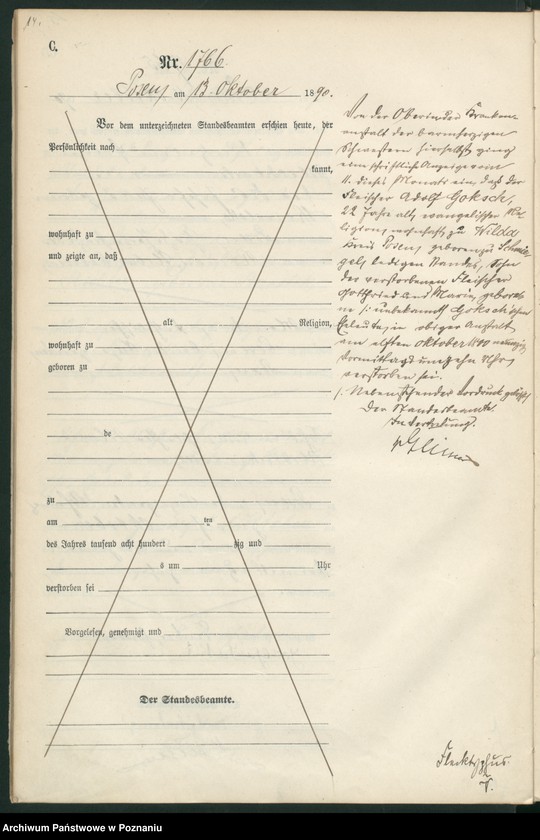 14.
C.
Nr. 1766.
Posen, am 13. Oktober 1890.
Vor dem unterzeichneten Standesbeamten erschien heute, der
Persönlichkeit nach
kannt,
wohnhaft zu
und zeigte an, daß
alt Religion,
wohnhaft zu
geboren zu
de
zu
am ten
des Jahres tausend acht hundert zig und
s um Uhr
verstorben sei
Vorgelesen, genehmigt und
Der Standesbeamte.
Von der Oberin der Kranken-
anstalt der barmherzigen
Schwestern hierselbst ging
eine schriftliche Anzeige vom
11. dieses Monats ein, daß der
Fleischer Adolf Goksch,
22 Jahre alt, evangelischer Re-
ligion, wohnhaft zu Wilda
Kreis Posen, geboren zu Schmie-
gel, ledigen Standes, Sohn
des verstorbenen Fleischer
Gottfried und Marie, gebore-
ne /: unbekannt Goksch'schen
Eheleute, in obiger Anstalt
am elften Oktober 1890 neunzig,
Vormittags um zehn Uhr
verstorben sei.
/: Nebenstehender Vordruck gelöscht
Der Standesbeamte.
In Vertretung.
Flecktyphus.
Archiwum Państwowe w Poznaniu